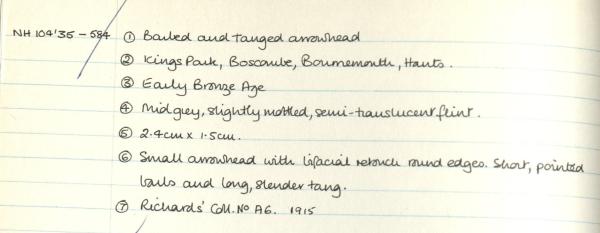 NH 104'35-584 ① Barbed and tanged arrowhead
② Kings Park, Boscombe, Bournemouth, Hants.
③ Early Bronze Age
④ Mid grey, slightly mottled, semi-translucent flint.
⑤ 2.4cm x 1.5cm.
⑥ Small arrowhead with bifacial retouch round edges. Short, pointed
barbs and long, slender tang.
⑦ Richards' Coll. No A6. 1915